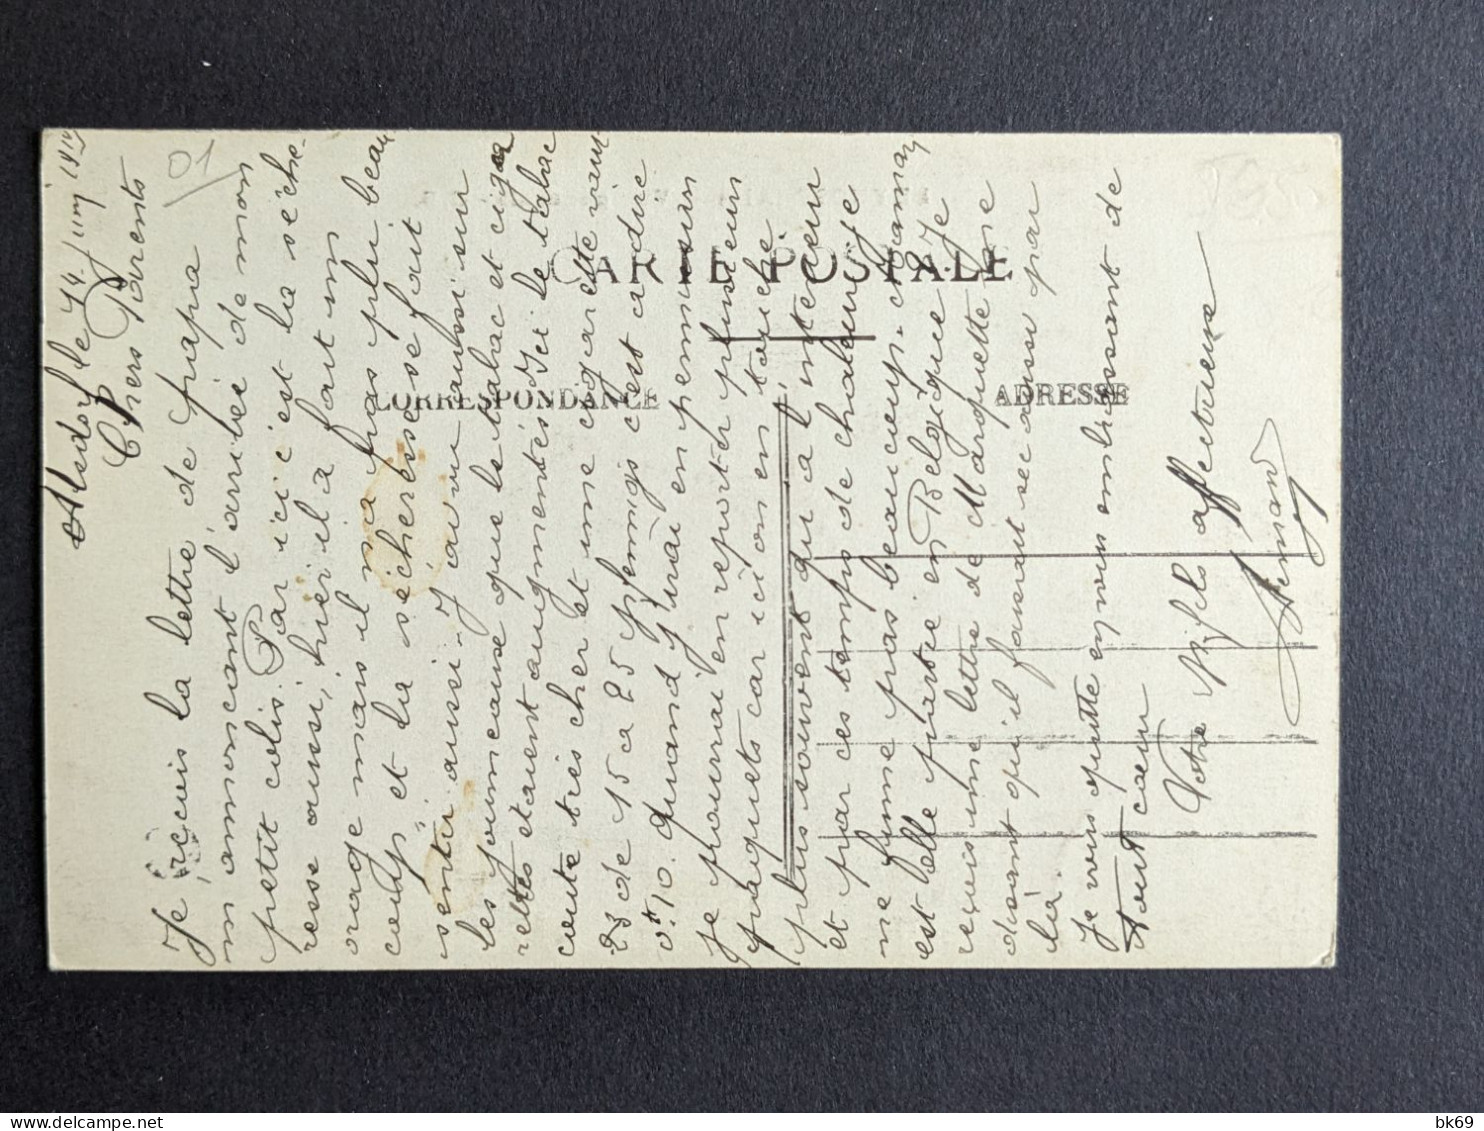 Alsdorf le 14 Juin
Chers Parents
01
Je reçois la lettre de papa
m annoncant l'arrivée de mon
petit colis. Par ici c'est la séche-
resse aussi, hier il a fait un
orage mais il n'a pas plu beau
coup et la sécheresse se fait
sentir aussi. J'ai vu aussi sur
les journeause que le tabac et ciga
rettes étaient augmentés Ici le tabac
coute très cher et une cigarette vaut
de 15 a 25 pfennigs c'est a dire
0f10. Quand j'irai en permission
je pourrai en reporter plusieurs
paquets car ici on en touche
plus souvent qu a l'interieur
et par ces temps de chaleur je
ne fume pas beaucoup. Germay
est elle partie en Belgique? Je
reçois une lettre de Marquette me
disant qu'il faisait sec aussi par
là.
Je vous quitte en vous embrassant de
tout cœur
Votre fils affectueux
Fernand
CARTE POSTALE
CORRESPONDANCE
ADRESSE
delcampe.net
bk69